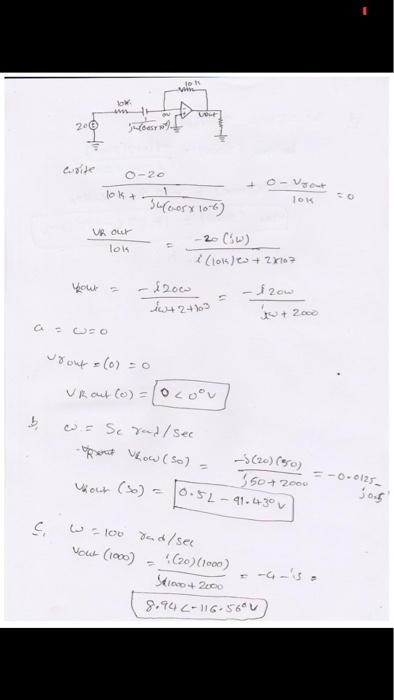 10 k
10k
0V
Vout
20
1
jω(0.05×10⁻⁶)
write
0-20 / 10k + 1/jω(0.05×10-6) + 0-Vrout / 10k = 0
VR out / 10k = -20(jω) / i(10k)ω + 2×107
Vrout = -j20ω / iω+2×10³ = -j20ω / jω+2000
a = ω=0
VRout=(0) = 0
VRout(0) = 0<0°V
b, ω = 50 rad/sec
VRow(50) = -j(20)(50) / j50+2000 = -0.0125-j0.5
VRout(50) = 0.5∠-91.43°V
C, ω = 100 rad/sec
Vout (1000) = i(20)(1000) / j1000+2000 = -4-j8 =
8.94∠-116.56°V